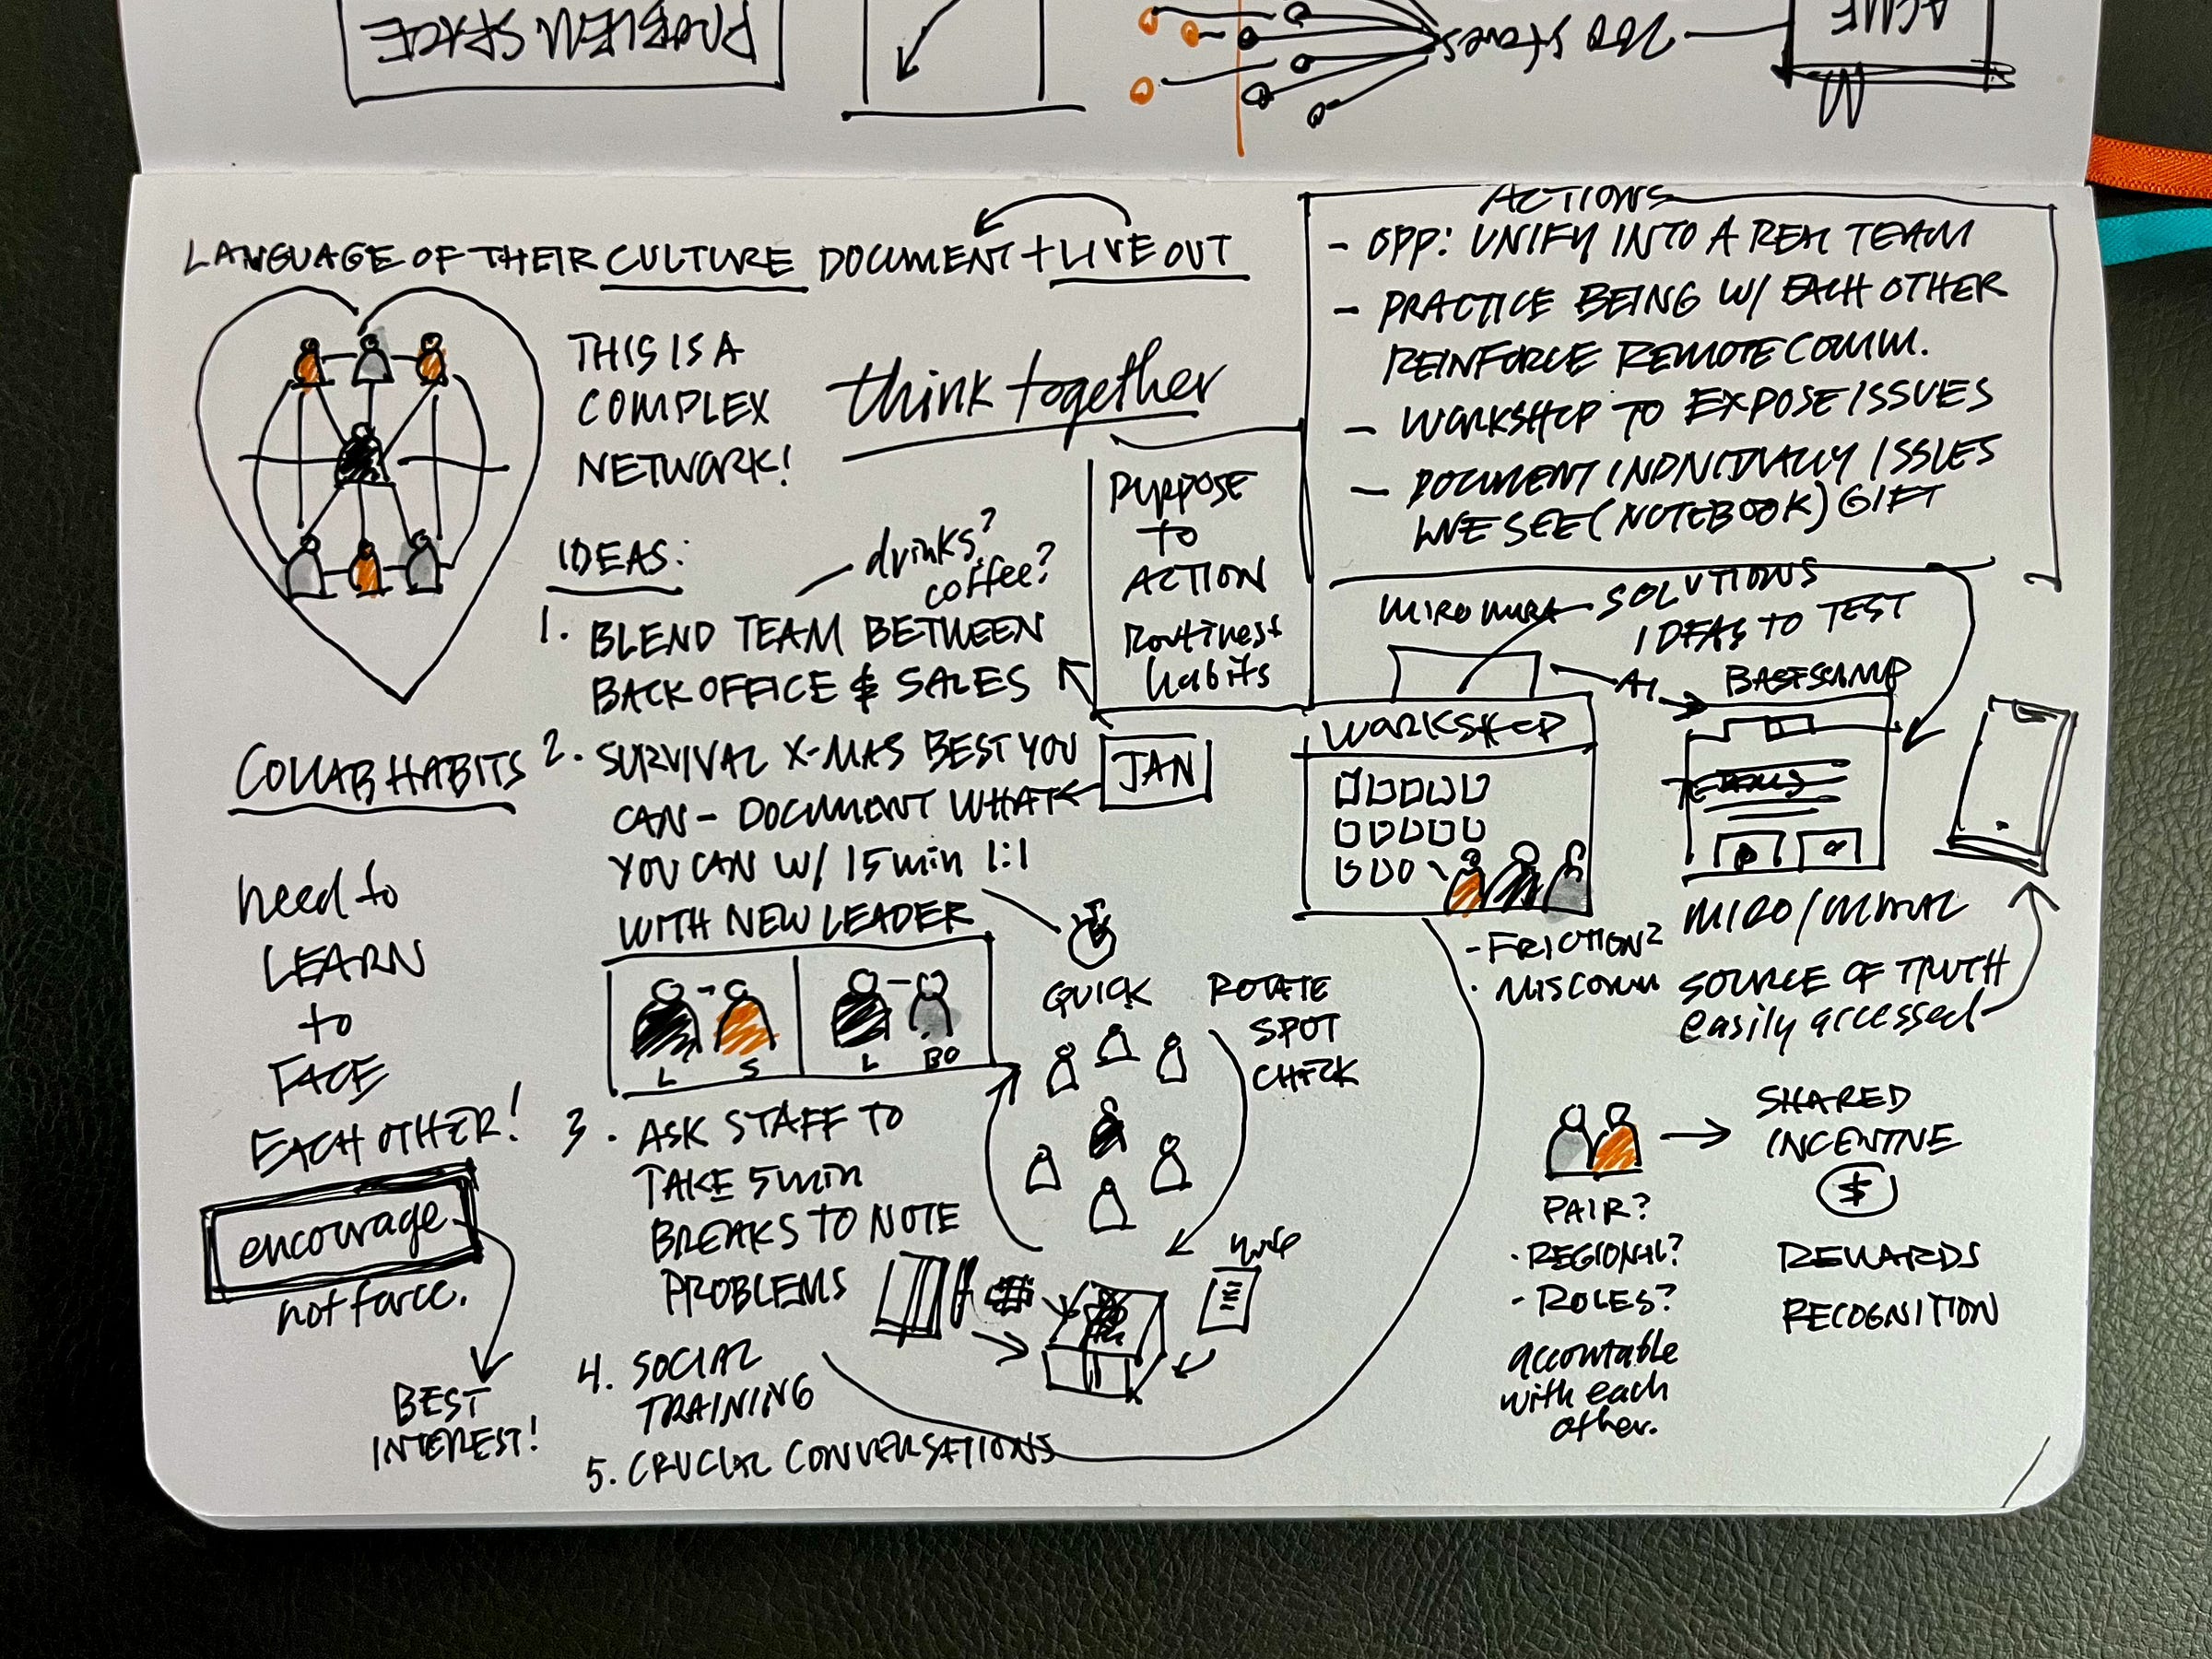 PROBLEM
SPACE
700 stores
ACME
LANGUAGE OF THEIR CULTURE DOCUMENT + LIVE OUT
THIS IS A
COMPLEX
NETWORK!
think together
IDEAS:
drinks?
coffee?
1. BLEND TEAM BETWEEN
BACK OFFICE & SALES
2. SURVIVAL X-MAS BEST YOU
CAN - DOCUMENT WHAT
YOU CAN W/ 15 min 1:1
WITH NEW LEADER
L S L BO
3. ASK STAFF TO
TAKE 5 min
BREAKS TO NOTE
PROBLEMS
4. SOCIAL
TRAINING
5. CRUCIAL CONVERSATIONS
COLLAB HABITS
need to
LEARN
to
FACE
EACH OTHER!
encourage
not force.
BEST
INTEREST!
PURPOSE
TO
ACTION
Routines +
habits
JAN
QUICK
ROTATE
SPOT
CHECK
note
ACTIONS
- OPP: UNIFY INTO A REAL TEAM
- PRACTICE BEING W/ EACH OTHER
REINFORCE REMOTE COMM.
- WORKSHOP TO EXPOSE ISSUES
- DOCUMENT INDIVIDUALLY ISSUES
WE SEE (NOTEBOOK) GIFT
MIRO MURA
SOLUTIONS
IDEAS TO TEST
BASECAMP
WORKSHOP
TEAMS
- FRICTION?
· MISCOMM
MIRO/MURAL
SOURCE OF TRUTH
easily accessed
PAIR?
· REGIONAL?
- ROLES?
accountable
with each
other.
SHARED
INCENTIVE
$
REWARDS
RECOGNITION